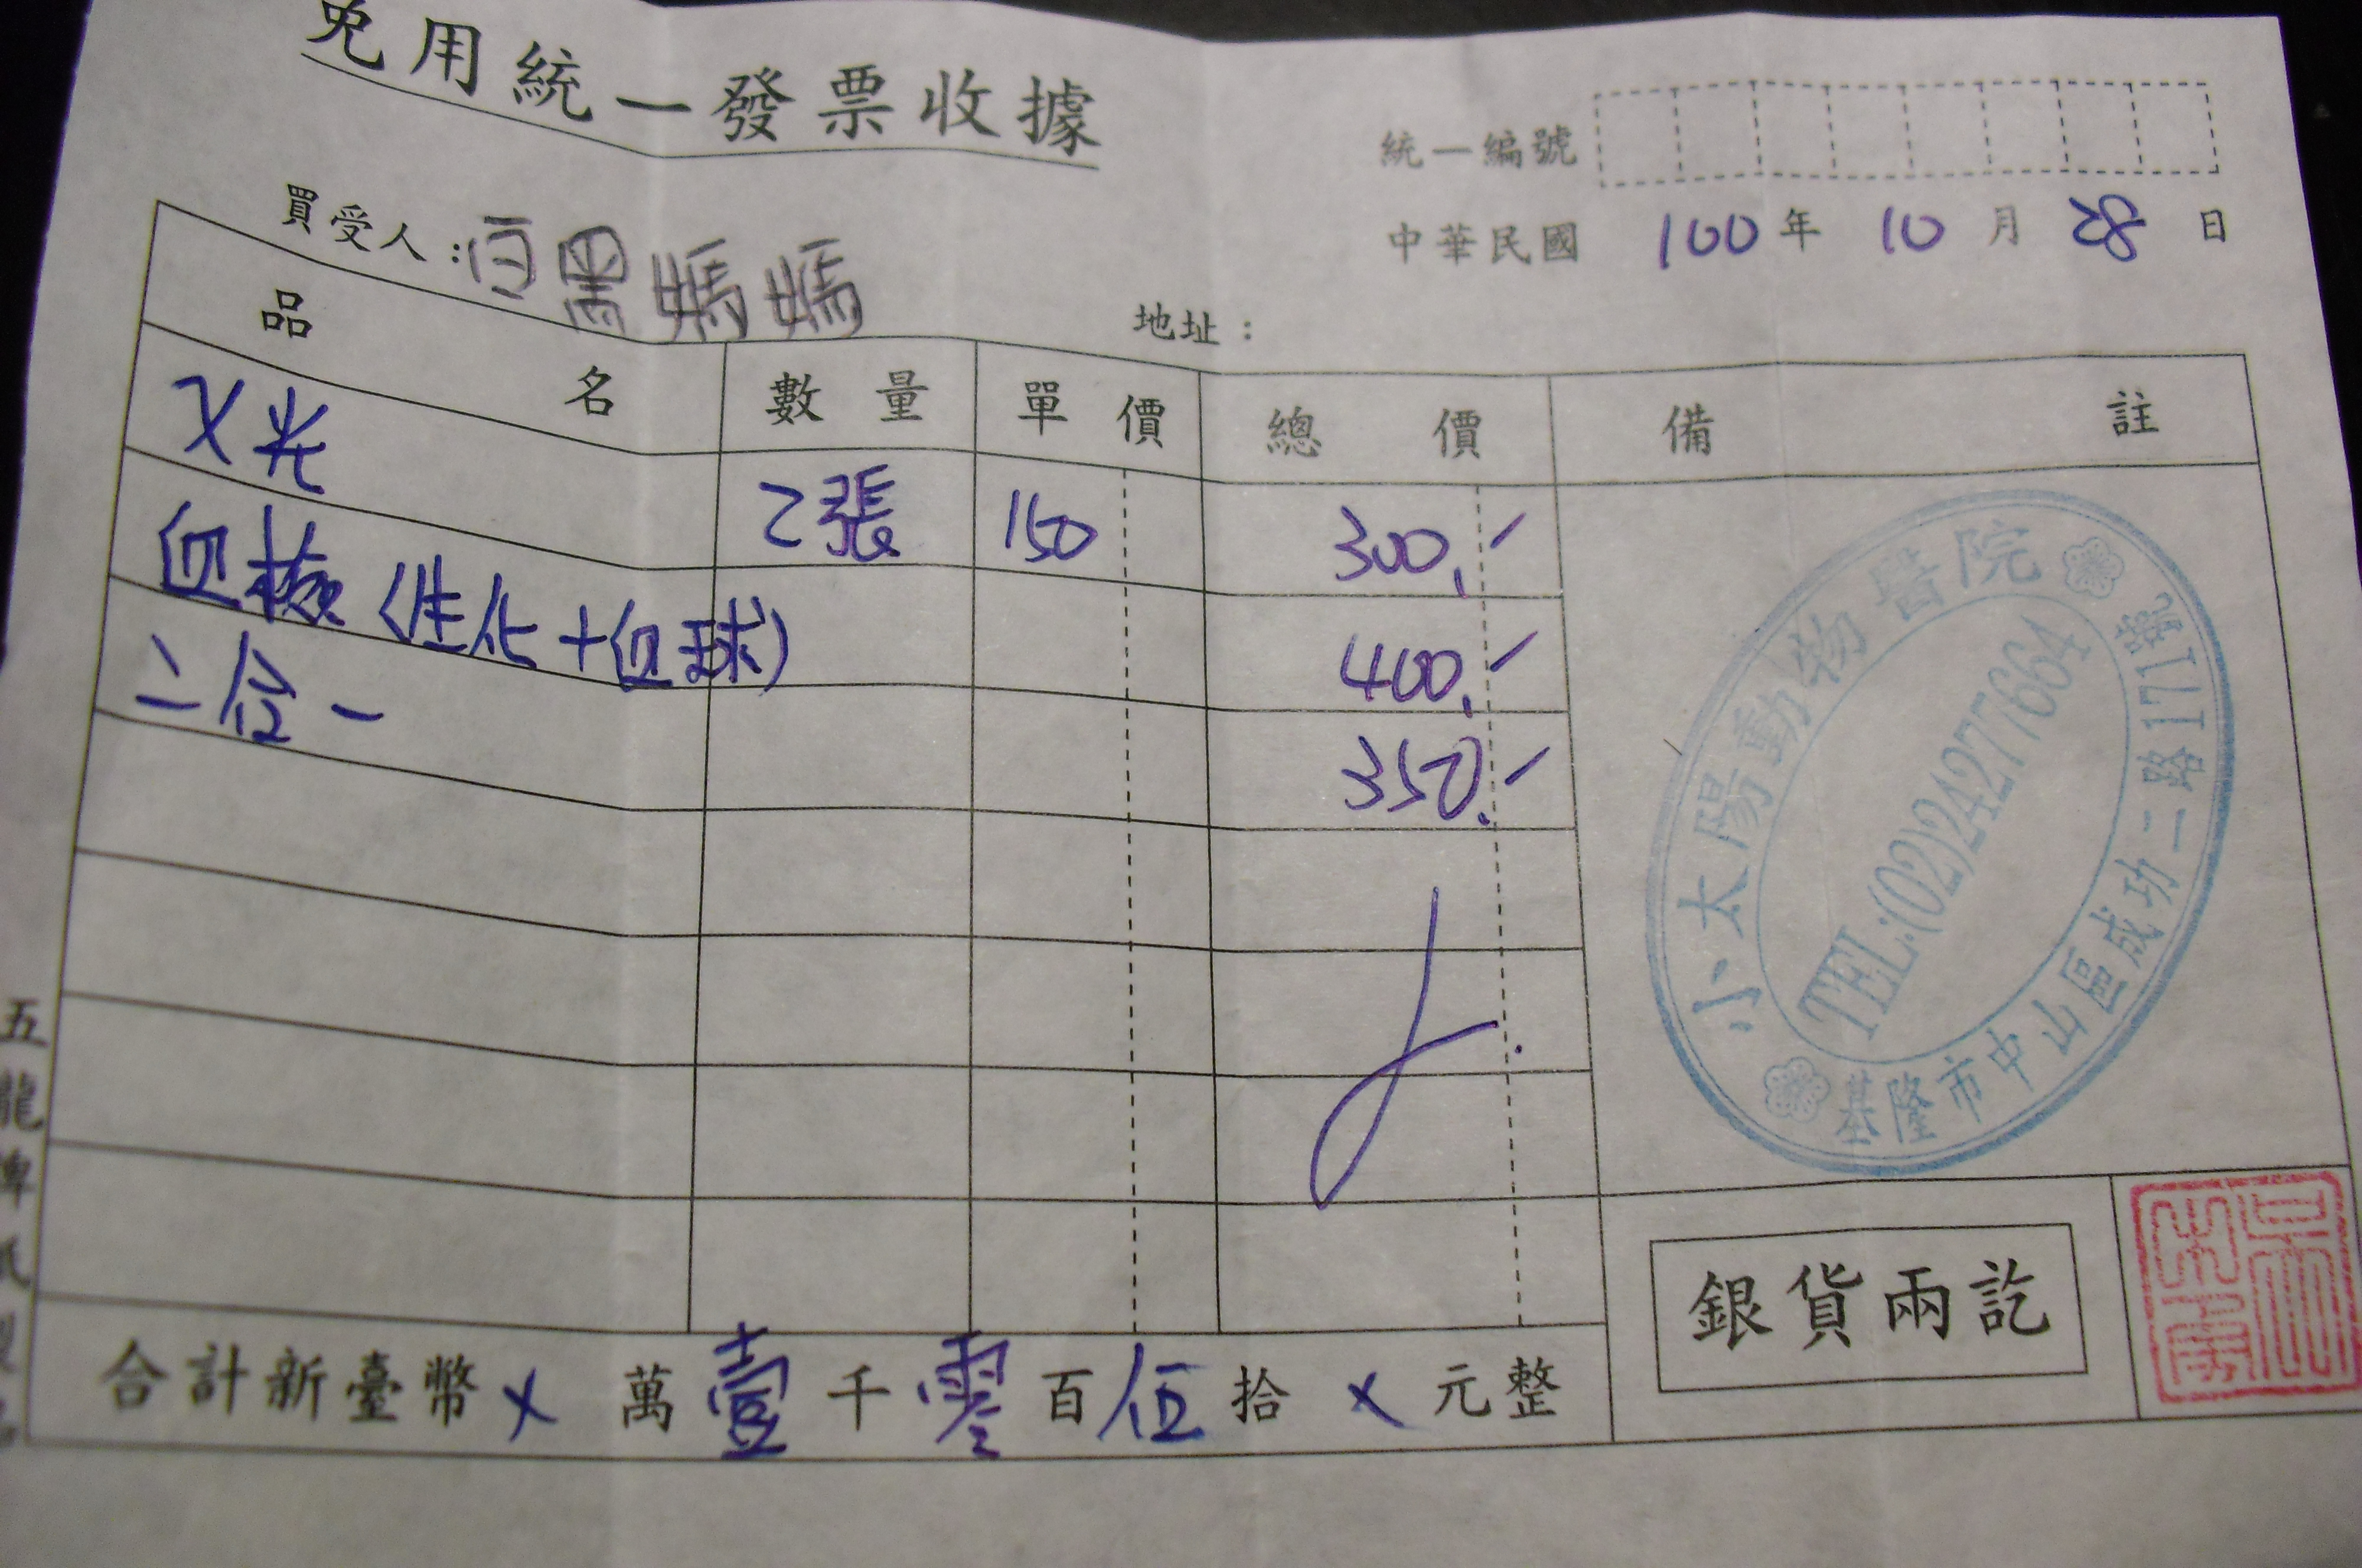 免用統一發票收據
統一編號
買受人：白黑媽媽
中華民國 100 年 10 月 28 日
地址：
品名 數量 單價 總價 備註
X光 2張 150 300.-
血檢(生化+血球) 400.-
二合一 350.-
小太陽動物醫院
TEL:(02)24277664
基隆市中山區成功二路171號
銀貨兩訖
合計新臺幣 X 萬 壹 千 零 百 伍 拾 X 元整
五龍牌紙製品